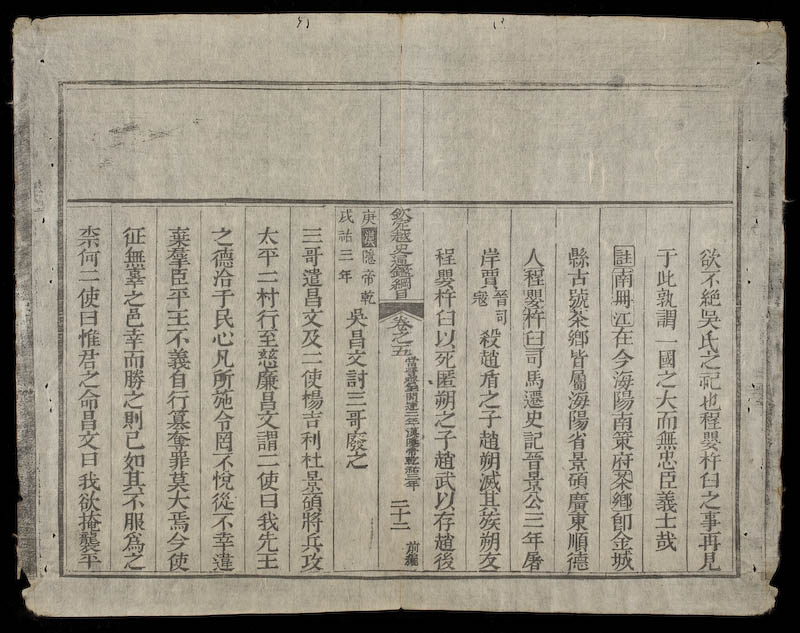 欲不絶吳氏之祀也程嬰杵臼之事再見
于此孰謂一國之大而無忠臣義士哉
註南冊江在今海陽南策府茶鄉即金城
縣古號茶鄉皆屬海陽省景碩廣東順德
人程嬰杵臼司馬遷史記晉景公三年屠
岸賈晉司寇殺趙盾之子趙朔滅其族朔友
程嬰杵臼以死匿朔之子趙武以存趙後
欽定越史通鑑綱目 卷之五 二十二 前編
庚戌漢隱帝乾祐三年吳昌文討三哥廢之
三哥遣昌文及二使楊吉利杜景碩將兵攻
太平二村行至慈廉昌文謂二使曰我先王
之德洽于民心凡所施令罔不悅從不幸違
棄羣臣平王不義自行篡奪罪莫大焉今使
征無辜之邑幸而勝之則已如其不服爲之
柰何二使曰惟君之命昌文曰我欲掩襲平